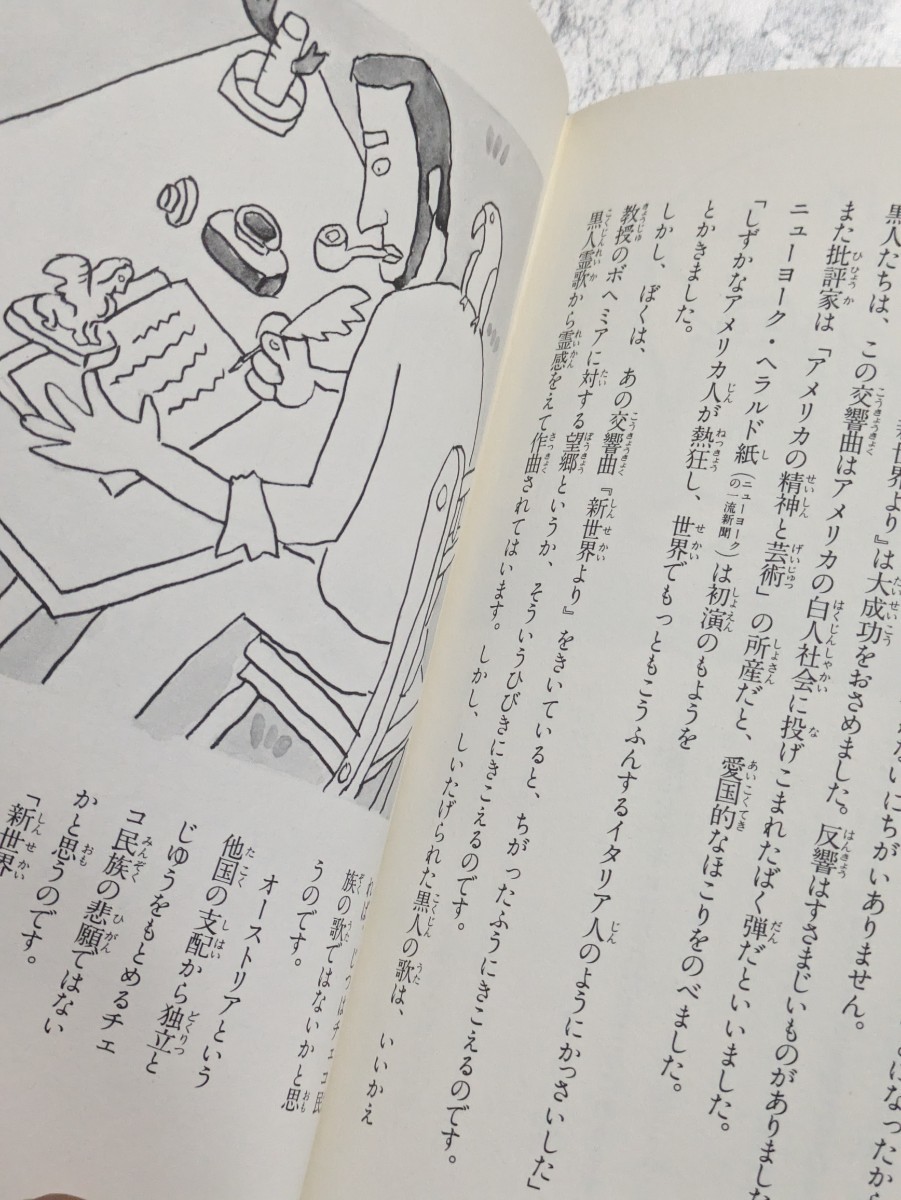 新世界より』は大成功をおさめました。反響はすさまじいものがありました
黒人たちは、この交響曲はアメリカの白人社会に投げこまれたばく弾だといいました。
また批評家は「アメリカの精神と芸術」の所産だと、愛国的なほこりをのべました。
ニューヨーク・ヘラルド紙(ニューヨークの一流新聞)は初演のもようを
「しずかなアメリカ人が熱狂し、世界でもっともこうふんするイタリア人のようにかっさいした」
とかきました。
しかし、ぼくは、あの交響曲『新世界より』をきいていると、ちがったふうにきこえるのです。
教授のボヘミアに対する望郷というか、そういうひびきにきこえるのです。
黒人霊歌から霊感をえて作曲されてはいます。しかし、しいたげられた黒人の歌は、いいかえ
れば、じつはチェコ民
族の歌ではないかと思
うのです。
オーストリアという
他国の支配から独立と
じゆうをもとめるチェ
コ民族の悲願ではない
かと思うのです。
「新世界